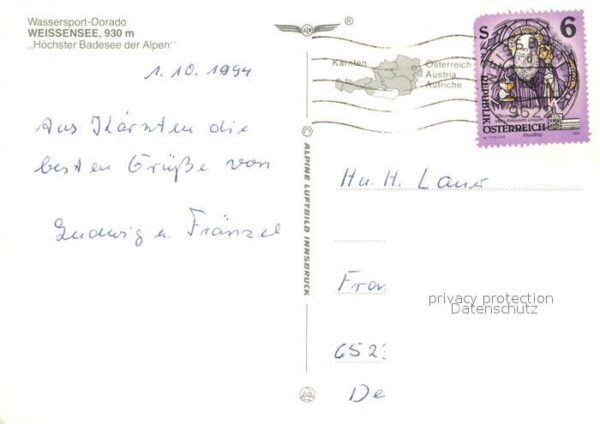 Wassersport-Dorado
WEISSENSEE, 930 m
„Höchster Badesee der Alpen"
1.10.1994
Aus Kärnten die
besten Grüße von
Ludwig u. Fränzel
Kärnten
Österreich
Austria
Autriche
®
© ALPINE LUFTBILD INNSBRUCK
S 6
REPUBLIK
ÖSTERREICH
962
Hn. H. Lauer
Fran
6523
De
privacy protection
Datenschutz